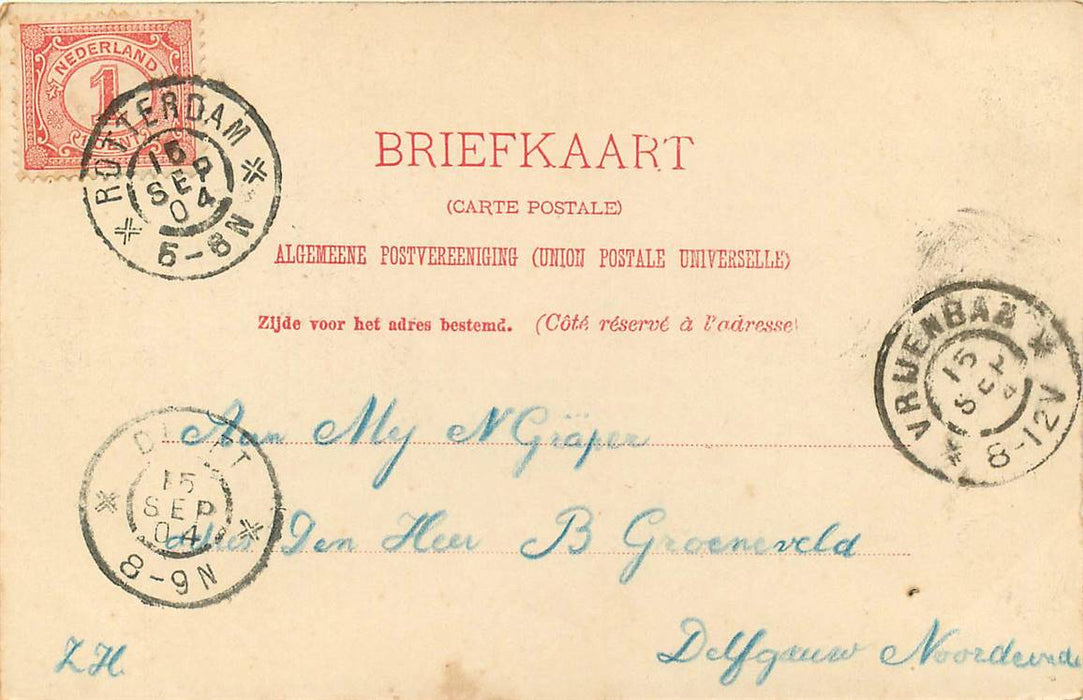 NEDERLAND
1
1 CENT
ROTTERDAM
15
SEP
04
5-8N
BRIEFKAART
(CARTE POSTALE)
ALGEMEENE POSTVEREENIGING (UNION POSTALE UNIVERSELLE)
Zijde voor het adres bestemd. (Côté réservé à l'adresse)
VRIJENBAN
15
SEP
4
8-12V
Aan Mej N Gräper
DELFT
15
SEP
04
8-9N
adres Den Heer B Groeneveld
Z.H.
Delfgauw Noordeinde